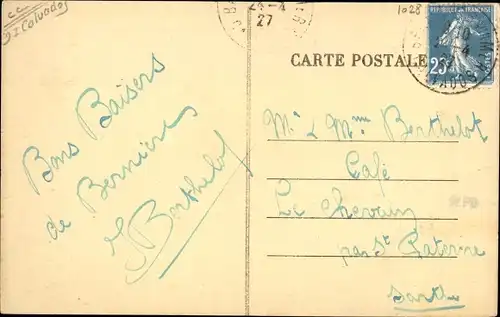 cc
D I Calvados
24-4
27
1028
CARTE POSTALE
REPUBLIQUE FRANÇAISE
Bons Baisers
de Bernieres
J Berthelot
Mr & Mme Berthelot
Café
Le Chevain
par St Paterne
Sarthe